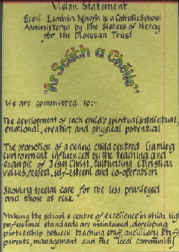 Vision Statement
Scoil Iognáid is a Catholic School
Administered by the Sisters of Mercy
for the Diocesan Trust
"Ar Scáth a Chéile"
We are committed to:-
The development of each child's spiritual, intellectual,
emotional, creative and physical potential
The promotion of a caring child centred learning
environment influenced by the teaching and
example of Jesus Christ, cultivating Christian
values, respect, self-esteem and co-operation
Showing special care for the less privileged
and those at risk
Making the school a centre of excellence in which high
professional standards are maintained, developing
partnership between teaching and auxiliary staff
parents, management and the local community